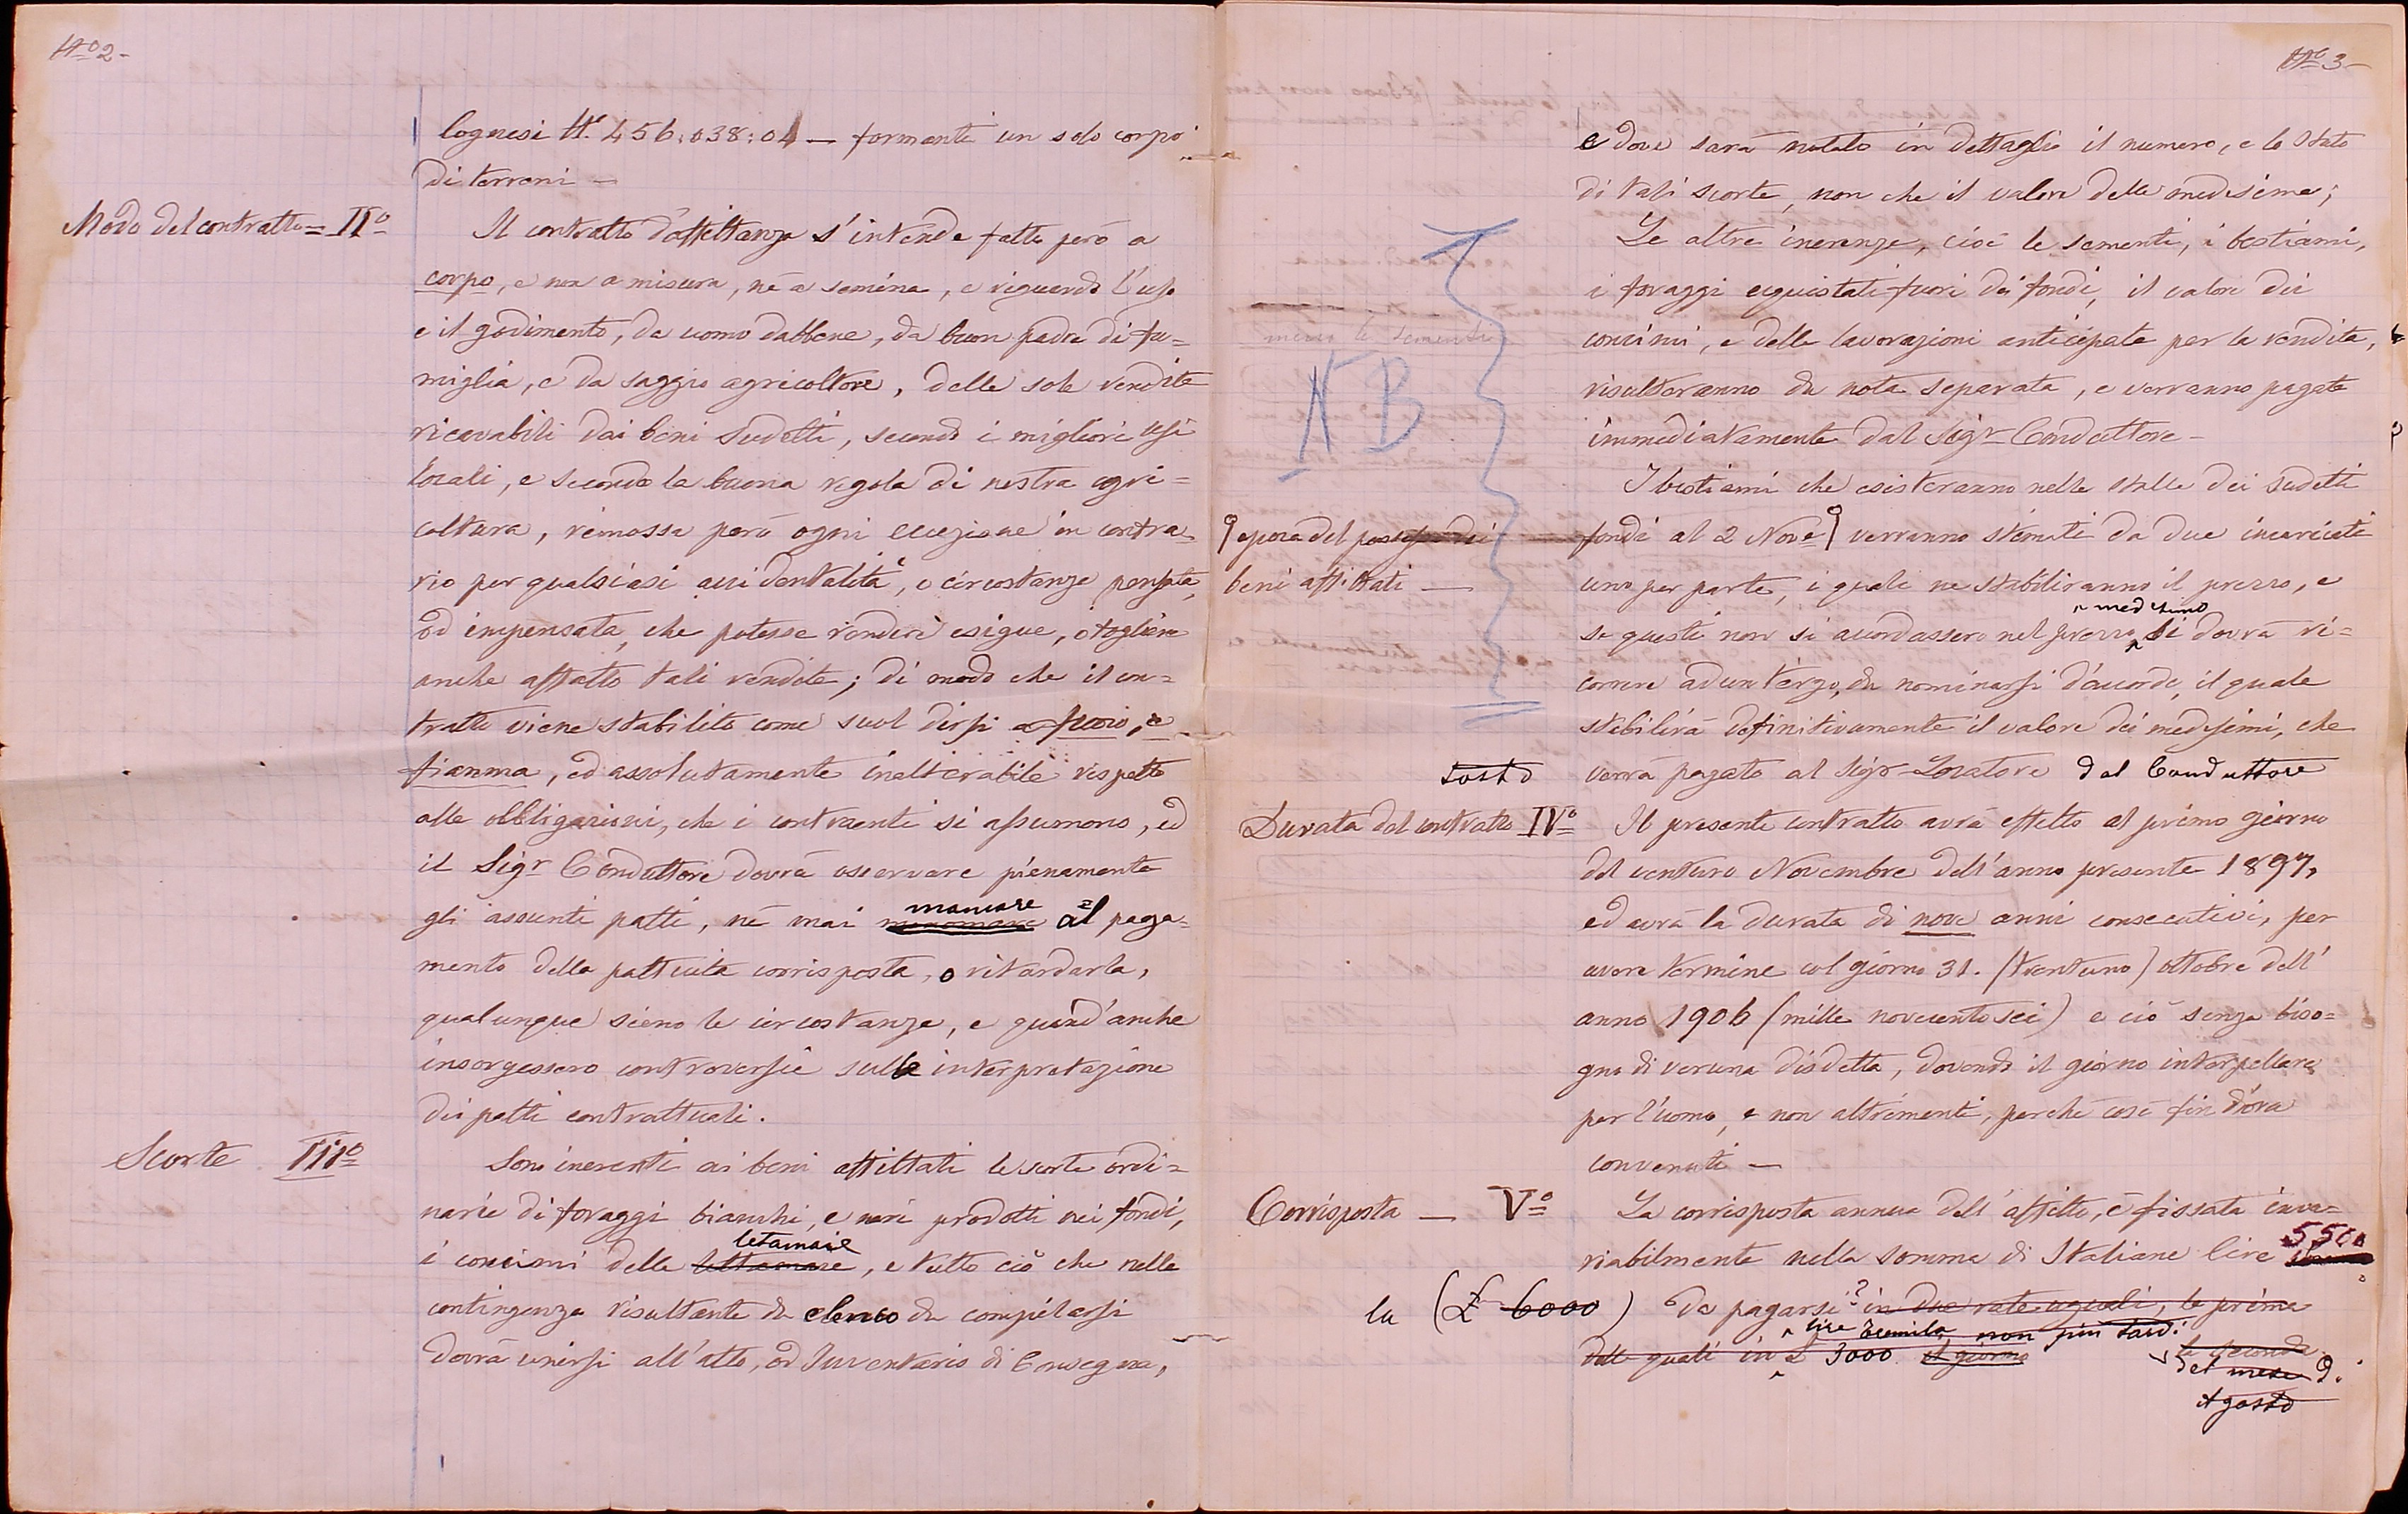 No 2-
lognesi No. 456:038:04 — formanti un solo corpo
di terreni —
Modo del contratto = IIo
Il contratto d'affittanza s'intende fatto però a
corpo, e non a misura, nè a semina, e riguardo l'uso
e il godimento, da uomo dabbene, da buon padre di fa=
miglia, e da saggio agricoltore, delle sole rendite
ricavabili dai beni sudetti, secondo i migliori usi
locali, e secondo la buona regola di nostra agri=
coltura, rimossa però ogni eccezione in contra=
rio per qualsiasi accidentalità, o circostanze pensata,
od impensata, che potesse rendere esigue, o togliere
anche affatto tali rendite; di modo che il con=
tratto viene stabilito come suol dirsi a fuoco, e
fiamma, ed assolutamente inalterabile rispetto
alle obbligazioni, che i contraenti si assumono, ed
il Sigr Conduttore dovrà osservare pienamente
gli assunti patti, nè mai mancare al paga=
mento della pattuita corrisposta, o ritardarla,
qualunque sieno le circostanze, e quand'anche
insorgessero controversie sulla interpretazione
dei patti contrattuali.
Scorte IIIo
Sono inerenti ai beni affittati le scorte ordi=
narie di foraggi bianchi, e neri prodotti nei fondi,
letamaie
i concimi delle lettamare, e tutto ciò che nelle
contingenze risultante da elenco da compilarsi
dovrà unirsi all'atto, od Inventario di Consegna,
No 3-
e dove sarà notato in dettaglio il numero, e lo stato
di tali scorte, non che il valore delle medesime;
Le altre inerenze, cioè le sementi, i bestiami,
i foraggi acquistati fuori dei fondi, il valore dei
concimi, e delle lavorazioni anticipate per la rendita,
risulteranno da nota separata, e verranno pagate
immediatamente dal Sigr Conduttore —
NB
I bestiami che esisteranno nelle stalle dei sudetti
epoca del possesso dei
fondi al 2 Nove verranno stimati da due incaricati
beni affittati —
uno per parte, i quali ne stabiliranno il prezzo, e
medesimo
se questi non si accordassero nel prezzo si dovrà ri=
correre ad un terzo, da nominarsi d'accordo, il quale
stabilirà definitivamente il valore dei medesimi, che
tosto
verrà pagato al Sigr Locatore dal Conduttore
Durata del contratto IVo
Il presente contratto avrà effetto al primo giorno
del venturo Novembre dell'anno presente 1897,
ed avrà la durata di nove anni consecutivi, per
avere termine col giorno 31. (trentuno) ottobre dell'
anno 1906 (mille novecento sei) e ciò senza biso=
gno di veruna disdetta, dovendo il giorno interpellare
per l'uomo, e non altrimenti, perchè così fin d'ora
convenuti —
Corrisposta — Vo
La corrisposta annua dell'affitto, è fissata inva=
5500
riabilmente nella somma di Italiane lire
la (£ 6000) da pagarsi in due rate uguali, la prima
lire tremila non più tardi
delle quali in £ 3000 il giorno
la seconda
del mese d.
Agosto